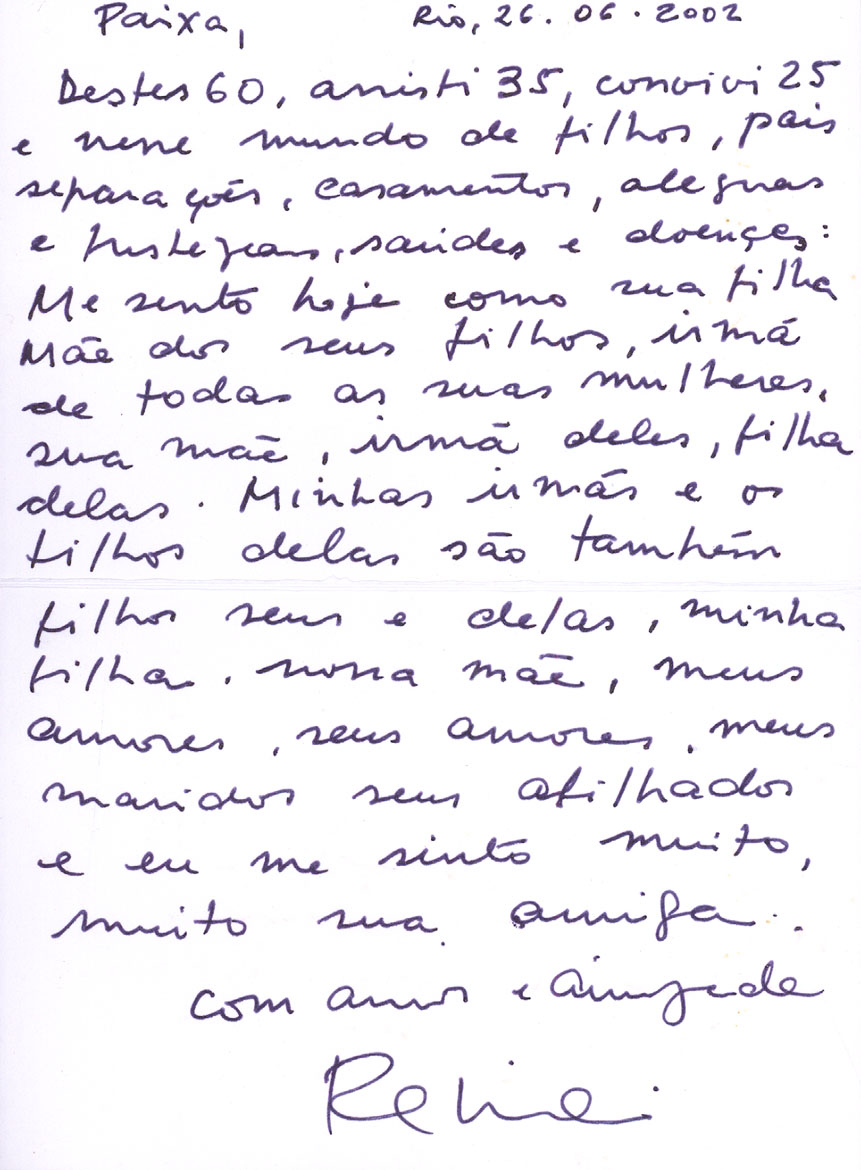 Paixa, Rio, 26.06.2002
Destes 60, assisti 35, convivi 25
e nesse mundo de filhos, pais
separações, casamentos, alegrias
e tristezas, saúdes e doenças:
Me sento hoje como sua filha
Mãe dos seus filhos, irmã
de todas as suas mulheres,
sua mãe, irmã deles, filha
delas. Minhas irmãs e os
filhos delas são também
filhos seus e delas, minha
filha, nossa mãe, meus
amores, seus amores, meus
maridos seus afilhados
e eu me sinto muito,
muito sua amiga.
com amor e amizade